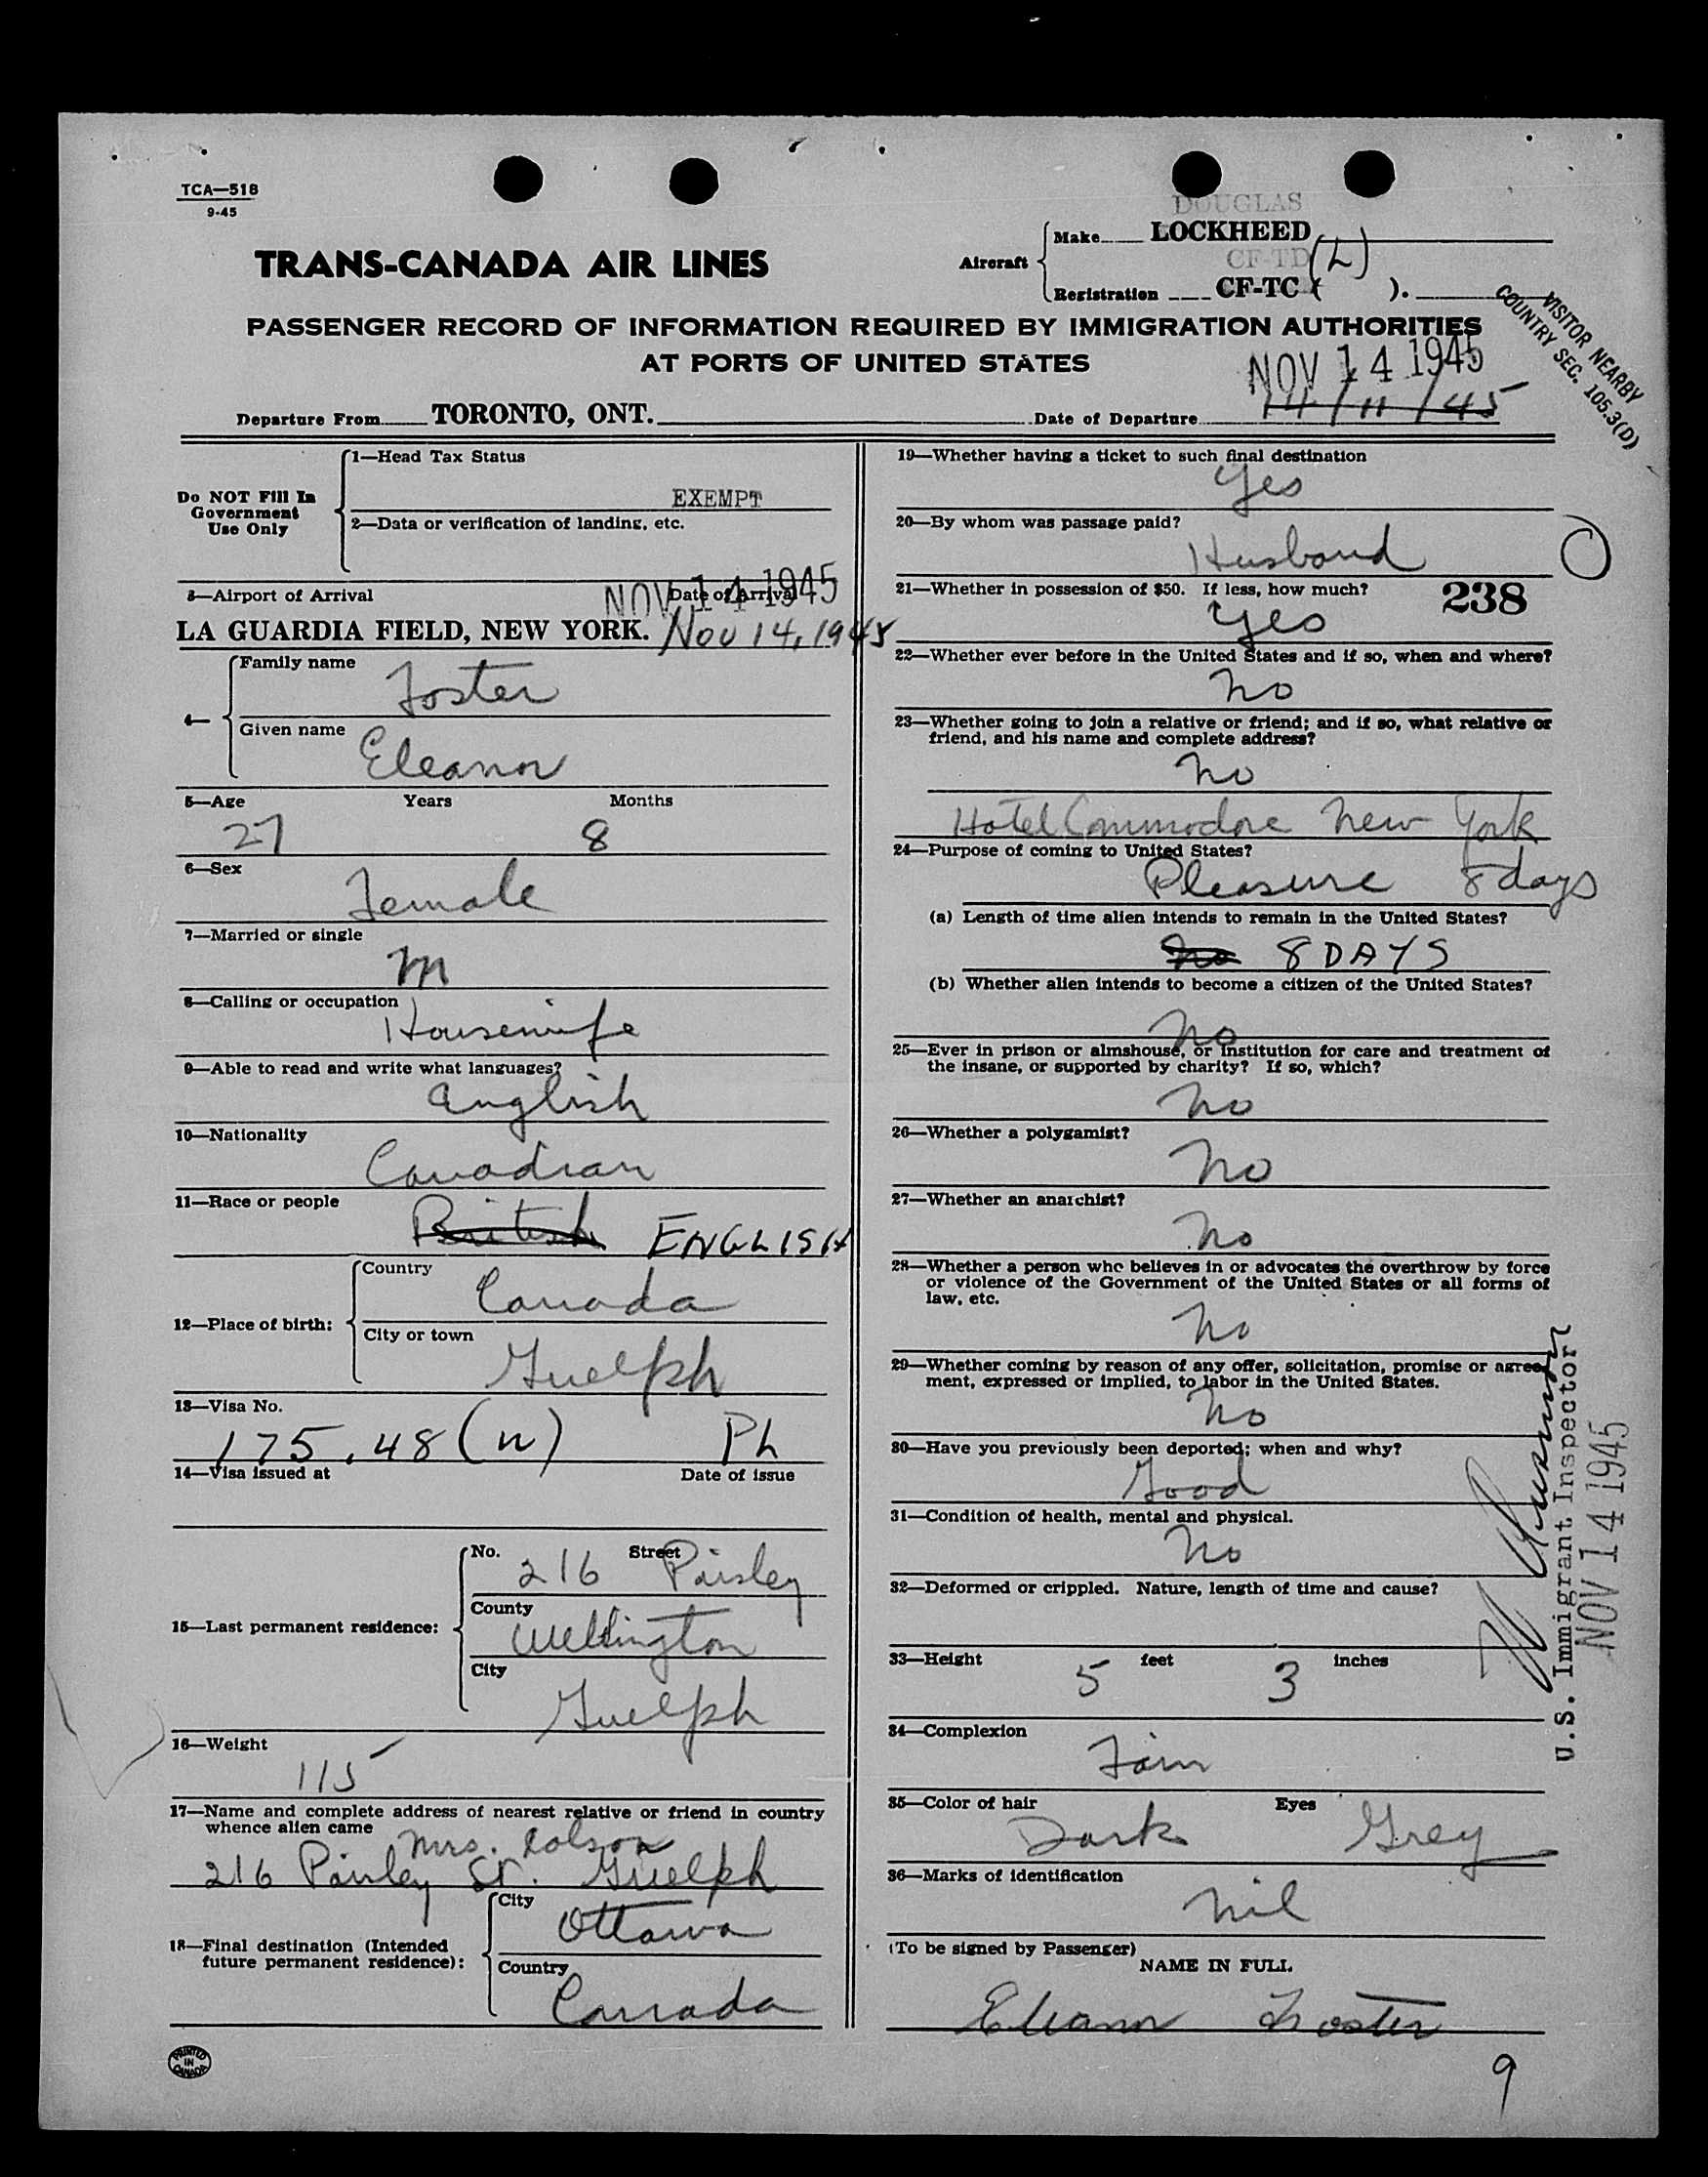 TCA—518
9-45
TRANS-CANADA AIR LINES
DOUGLAS
Aircraft
Make LOCKHEED
CF-TD (L)
Registration CF-TC ( ).
PASSENGER RECORD OF INFORMATION REQUIRED BY IMMIGRATION AUTHORITIES
AT PORTS OF UNITED STATES
VISITOR NEARBY
COUNTRY SEC. 105.3(D)
NOV 14 1945
Departure From TORONTO, ONT. Date of Departure 14/11/45
Do NOT Fill In
Government
Use Only
1—Head Tax Status
EXEMPT
2—Data or verification of landing, etc.
3—Airport of Arrival Date of Arrival
NOV 14 1945
LA GUARDIA FIELD, NEW YORK. Nov 14, 1945
4—
Family name
Foster
Given name
Eleanor
5—Age Years Months
27 8
6—Sex
Female
7—Married or single
M
8—Calling or occupation
Housewife
9—Able to read and write what languages?
English
10—Nationality
Canadian
11—Race or people
British ENGLISH
12—Place of birth:
Country
Canada
City or town
Guelph
13—Visa No.
175.48 (n) Ph
14—Visa issued at Date of issue
15—Last permanent residence:
No. Street
216 Paisley
County
Wellington
City
Guelph
16—Weight
115
17—Name and complete address of nearest relative or friend in country
whence alien came
Mrs.
216 Paisley St. Guelph
18—Final destination (Intended
future permanent residence):
City
Ottawa
Country
Canada
PRINTED
IN
CANADA
19—Whether having a ticket to such final destination
Yes
20—By whom was passage paid?
Husband
21—Whether in possession of $50. If less, how much?
238
Yes
22—Whether ever before in the United States and if so, when and where?
No
23—Whether going to join a relative or friend; and if so, what relative or
friend, and his name and complete address?
No
Hotel Commodore New York
24—Purpose of coming to United States?
Pleasure 8 days
(a) Length of time alien intends to remain in the United States?
No 8 DAYS
(b) Whether alien intends to become a citizen of the United States?
No
25—Ever in prison or almshouse, or institution for care and treatment of
the insane, or supported by charity? If so, which?
No
26—Whether a polygamist?
No
27—Whether an anarchist?
No
28—Whether a person who believes in or advocates the overthrow by force
or violence of the Government of the United States or all forms of
law, etc.
No
29—Whether coming by reason of any offer, solicitation, promise or agree-
ment, expressed or implied, to labor in the United States.
No
30—Have you previously been deported; when and why?
Good
31—Condition of health, mental and physical.
No
32—Deformed or crippled. Nature, length of time and cause?
33—Height 5 feet 3 inches
34—Complexion
Fair
35—Color of hair Eyes
Dark Grey
36—Marks of identification
Nil
(To be signed by Passenger)
NAME IN FULL
Eleanor Foster
U.S. Immigrant Inspector
NOV 14 1945
9